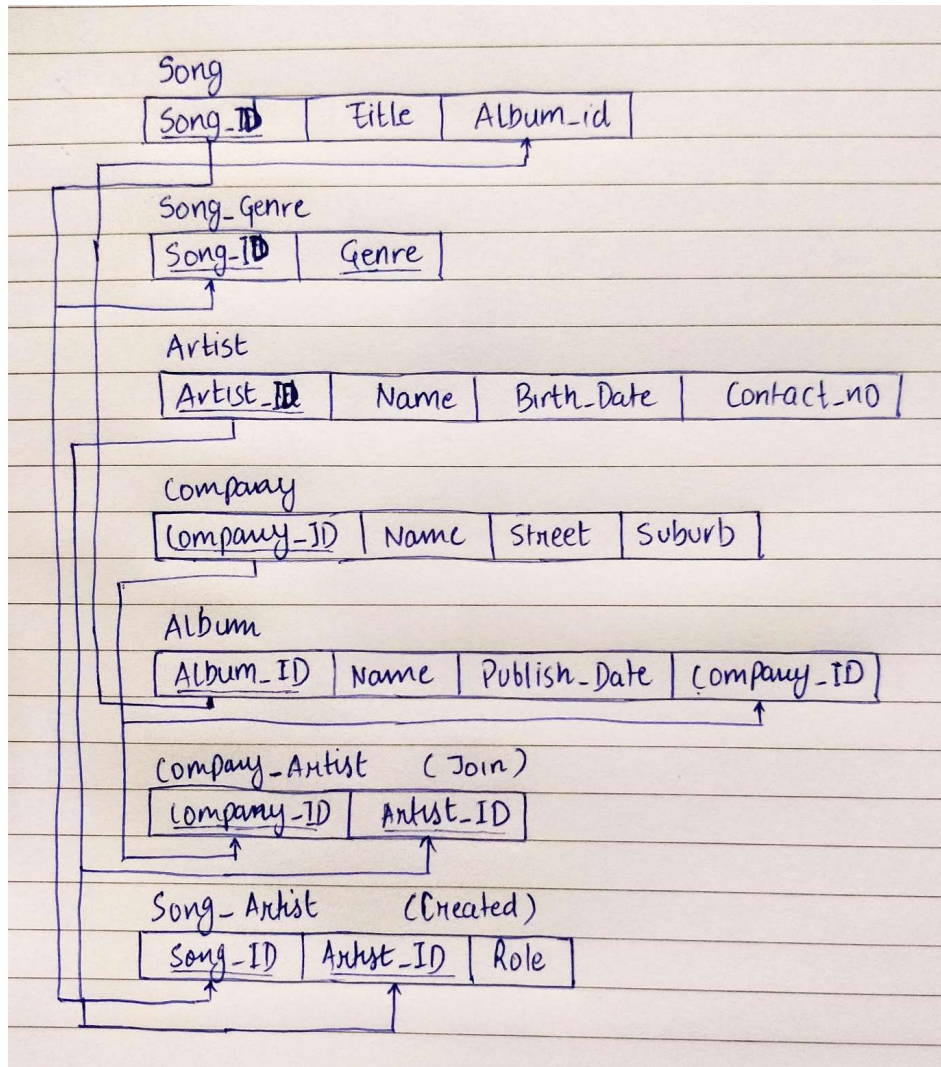 Song
Song_ID Title Album_id
Song_Genre
Song_ID Genre
Artist
Artist_ID Name Birth_Date Contact_no
Company
Company_ID Name Street Suburb
Album
Album_ID Name Publish_Date Company_ID
Company_Artist (Join)
Company_ID Artist_ID
Song_Artist (Created)
Song_ID Artist_ID Role